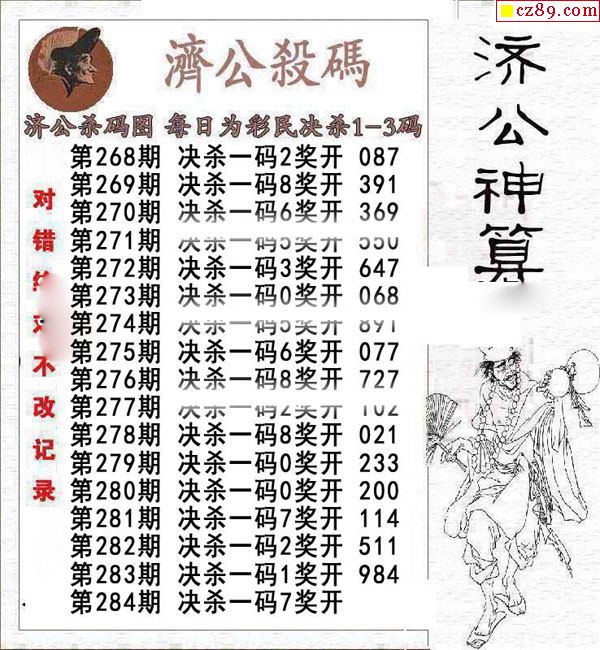 cz89.com
濟公殺碼
济公杀码图 每日为彩民决杀1-3码
第268期 决杀一码2奖开 087
第269期 决杀一码8奖开 391
第270期 决杀一码6奖开 369
第271期 决杀一码5奖开 550
第272期 决杀一码3奖开 647
第273期 决杀一码0奖开 068
第274期 决杀一码5奖开 891
第275期 决杀一码6奖开 077
第276期 决杀一码8奖开 727
第277期 决杀一码2奖开 102
第278期 决杀一码8奖开 021
第279期 决杀一码0奖开 233
第280期 决杀一码0奖开 200
第281期 决杀一码7奖开 114
第282期 决杀一码2奖开 511
第283期 决杀一码1奖开 984
第284期 决杀一码7奖开
对错 不改记录
济公神算